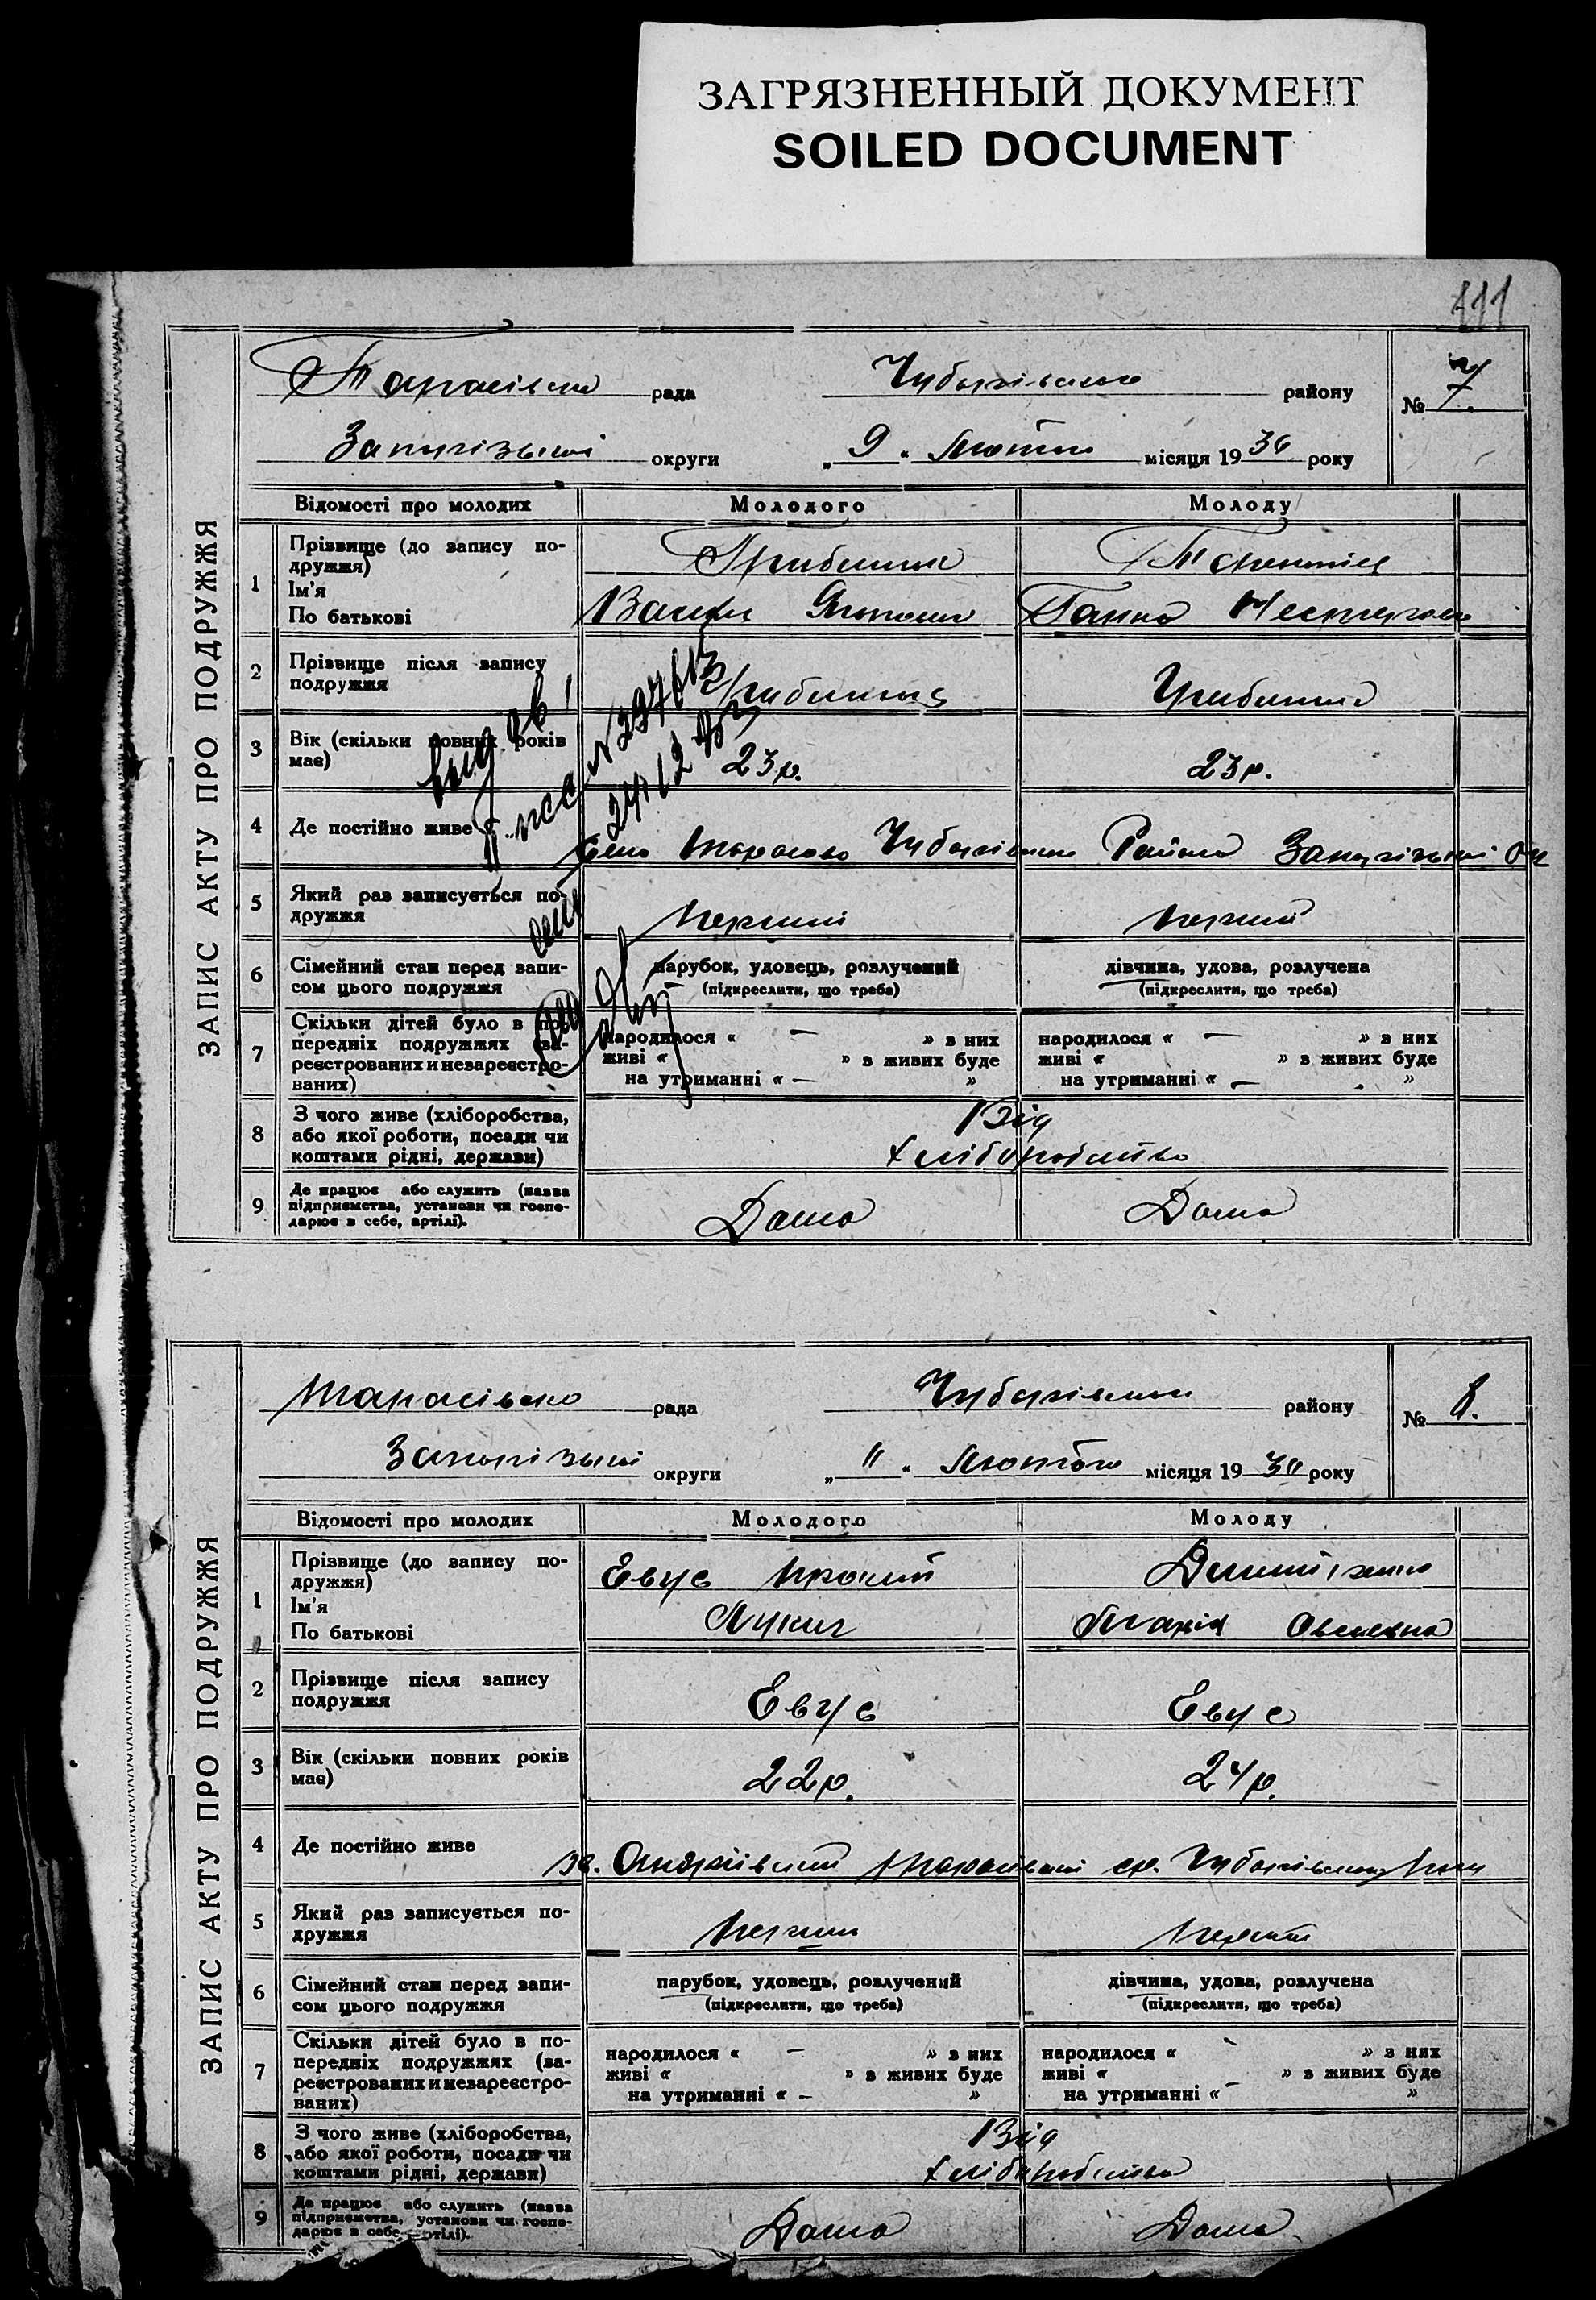 ЗАГРЯЗНЕННЫЙ ДОКУМЕНТ
SOILED DOCUMENT
111
ЗАПИС АКТУ ПРО ПОДРУЖЖЯ
Тарасівська рада Чубарівського району № 7.
Запорізької округи „ 9 “ Лютого місяця 1930 року
Відомості про молодих Молодого Молоду
1 Прізвище (до запису по-
дружжя)
Ім'я
По батькові Ганна Нестерова
2 Прізвище після запису
подружжя
3 Вік (скільки повних років
має) 23 р. 23 р.
4 Де постійно живе Село Тарасово Чубарівського Району Запорізької ок
5 Який раз записується по-
дружжя перший перший
6 Сімейний стан перед запи-
сом цього подружжя
парубок, удовець, розлучений
(підкреслити, що треба)
дівчина, удова, розлучена
(підкреслити, що треба)
7 Скільки дітей було в по-
передніх подружжях (за-
реєстрованих и незареєстро-
ваних)
народилося « — » з них
живі « » в живих буде
на утриманні « — »
народилося « — » з них
живі « » в живих буде
на утриманні « — »
8 З чого живе (хліборобства,
або якої роботи, посади чи
коштами рідні, держави)
Від
хліборобства
9 Де працює або служить (назва
підприємства, установи чи госпо-
дарює в себе, артілі).
Дома Дома
видав
24/12
ЗАПИС АКТУ ПРО ПОДРУЖЖЯ
Тарасівська рада Чубарівського району № 8.
Запорізької округи „ 11 “ Лютого місяця 1930 року
Відомості про молодих Молодого Молоду
1 Прізвище (до запису по-
дружжя)
Ім'я
По батькові
Евус
Лукич Марія
2 Прізвище після запису
подружжя Евус Евус
3 Вік (скільки повних років
має) 22 р. 24 р.
4 Де постійно живе Чубарівського
5 Який раз записується по-
дружжя перший перший
6 Сімейний стан перед запи-
сом цього подружжя
парубок, удовець, розлучений
(підкреслити, що треба)
дівчина, удова, розлучена
(підкреслити, що треба)
7 Скільки дітей було в по-
передніх подружжях (за-
реєстрованих и незареєстро-
ваних)
народилося « — » з них
живі « » в живих буде
на утриманні « — »
народилося « — » з них
живі « » в живих буде
на утриманні « — »
8 З чого живе (хліборобства,
або якої роботи, посади чи
коштами рідні, держави)
Від
хліборобства
9 Де працює або служить (назва
підприємства, установи чи госпо-
дарює в себе, артілі).
Дома Дома